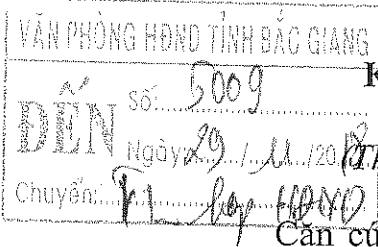 VĂN PHÒNG HĐND TỈNH BẮC GIANG
K
ĐẾN
Số: 5009
Ngày: 29 / 11 / 20
Chuyển: họp HĐND
Căn cứ